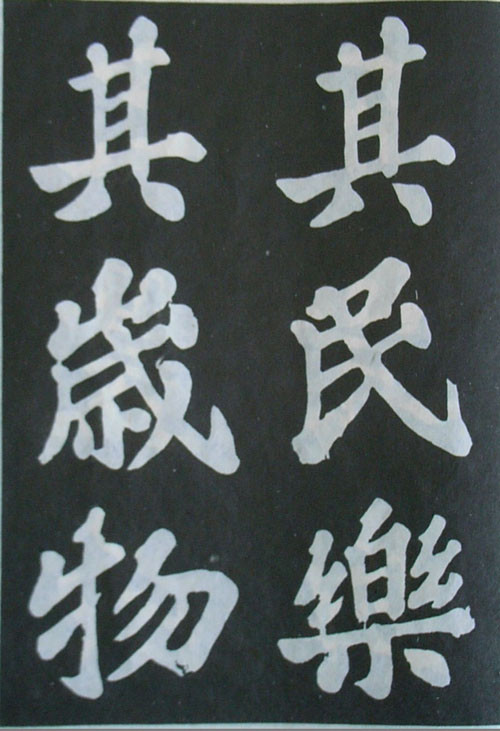 其民樂
其歲物